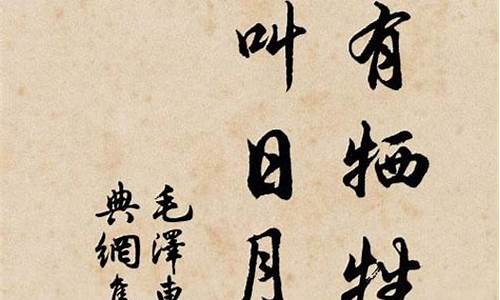 有牺牲
叫日月
毛澤東
典網隽